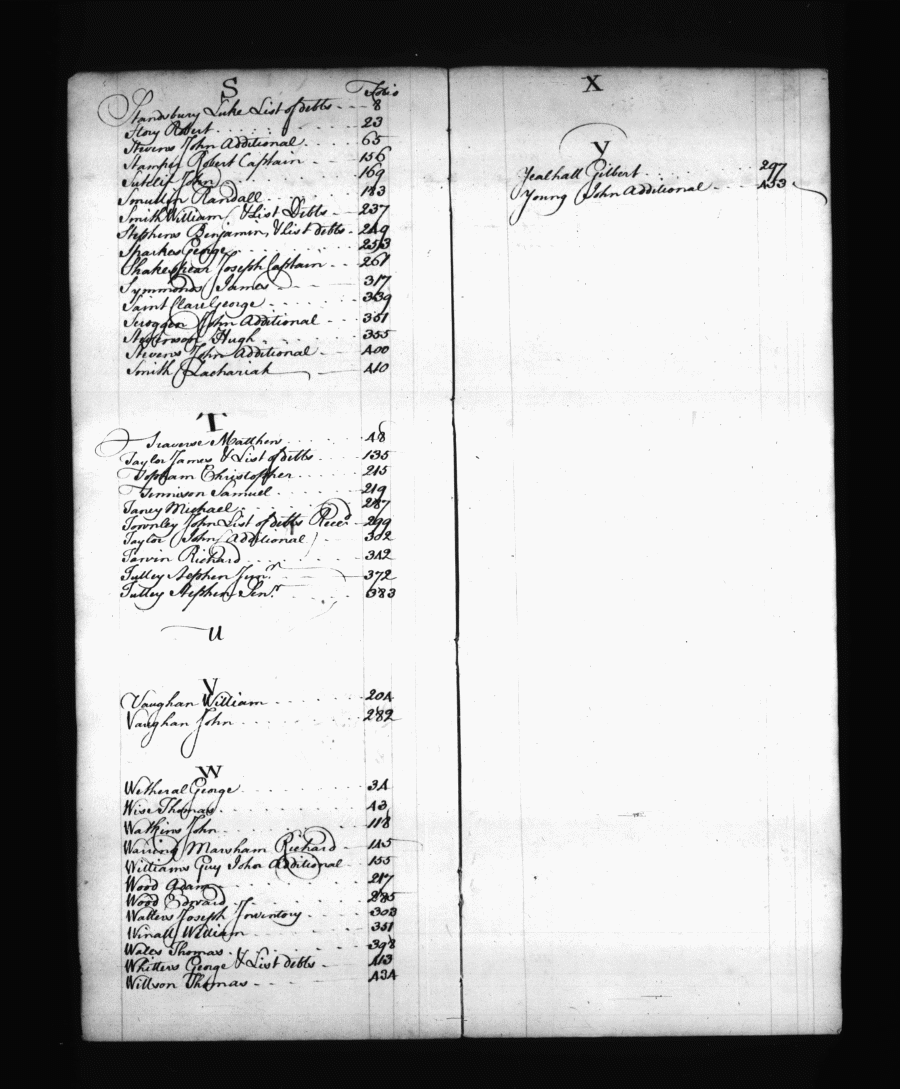 S
Folio
Standsbury Luke List of debts 8
Story Robert 23
Stevens John Additional 65
Stamper Robert Captain 156
Sutclif John 169
Smullen Randall 183
Smith William & List Debts 237
Stephens Benjamin & List debts 249
Sparkes George 253
Shakespear Joseph Captain 261
Symmonds James 317
Saint Clare George 339
Scroggen John Additional 351
Stevenson Hugh 355
Stevens John Additional 400
Smith Zachariah 410
T
Traverse Matthew 48
Taylor James & List of debts 135
Topham Christopher 215
Tennison Samuel 219
Taney Michael 287
Townley John List of debts Recd. 299
Taylor John (Additional) 302
Tarvin Richard 342
Tulley Stephen Junr. 372
Tulley Stephen Senr. 383
U
V
Vaughan William 204
Vaughan John 282
W
Wetheral George 34
Wise Thomas 43
Watkins John 118
Waring Marsham Richard 145
Williams Guy John Additional 155
Wood Adam 217
Wood Edward 285
Walters Joseph Inventory 303
Winall William 351
Wales Thomas 398
Whitters George & List debts 413
Willson Thomas 434
X
Y
Yealhall Gilbert 297
Young John Additional 433